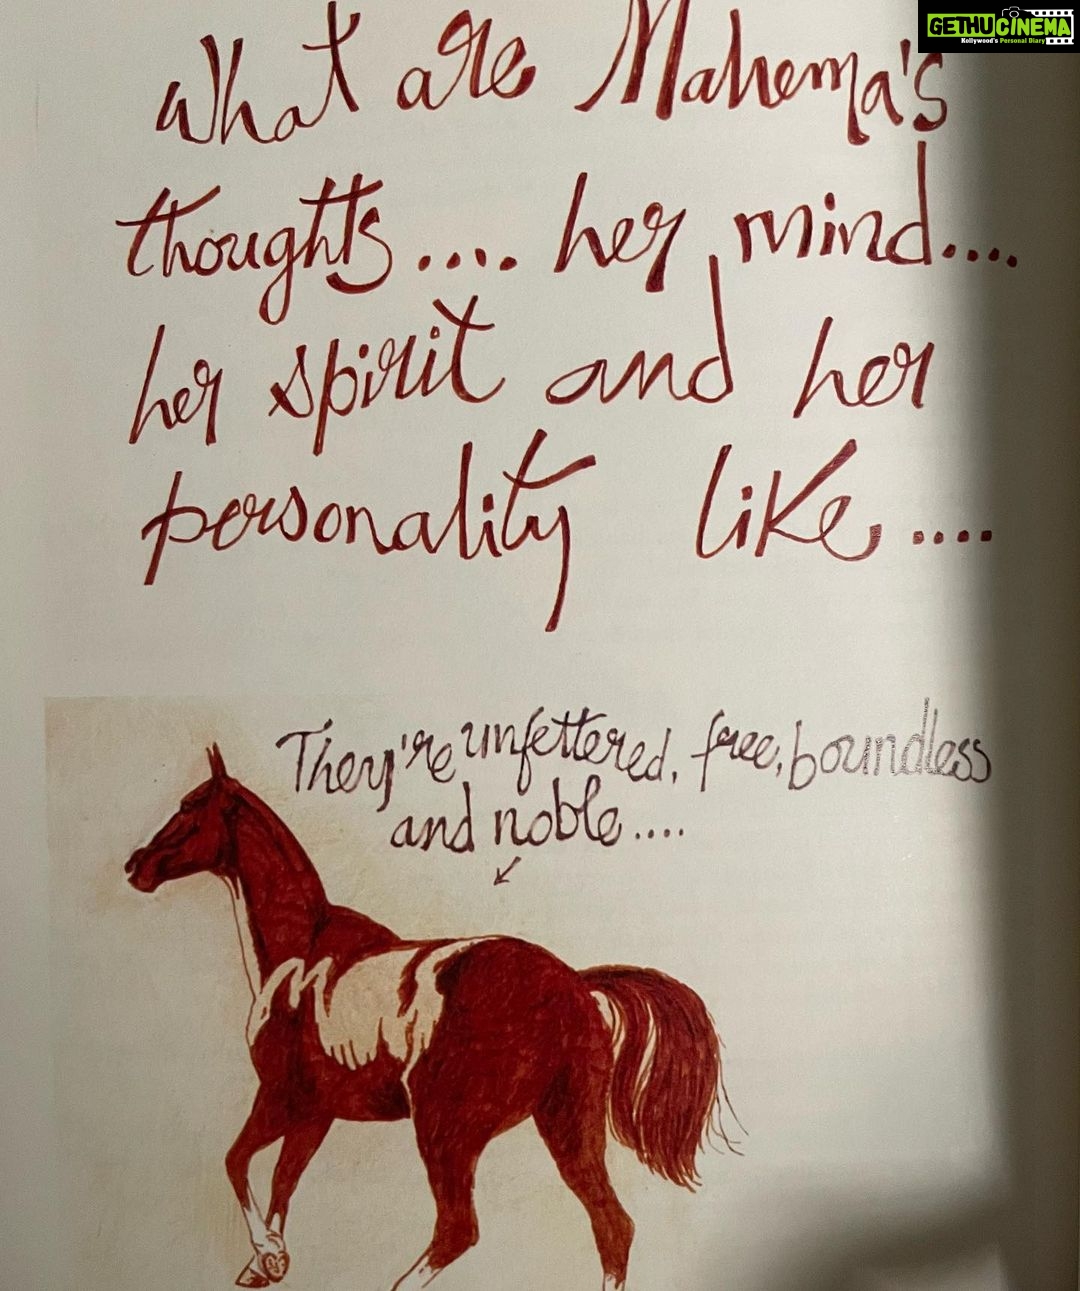 GETHUCINEMA
Kollywood's Personal Diary
What are Mahema's
thoughts.... her mind....
her spirit and her
personality like....
They're unfettered, free, boundless
and noble....